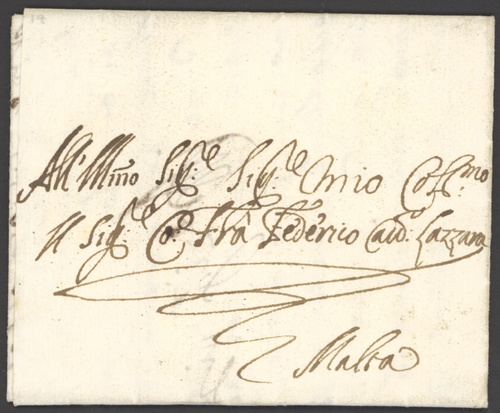 All' Illmo Sig:re Sig:re Mio Col:mo
Il Sig:r Co: Frà Federico Lazzara
Malta